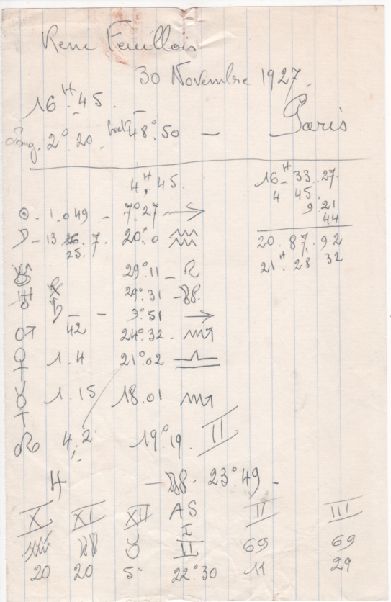 Rene Feuillois
30 Novembre 1927.
16 H 45. —
Long. 2° 20 Lat 48°.50 — Paris
4 H 45.
16 H 33. 27.
4 45.
9 21
44
20. 87. 92
21 H 28 32
☉ - 1.049 - 7°.27 ♐
☽ - 13 25. 7. 20°.0 ♒
♅ 29°.11 - R
29°.31 - ♓
♄ - - 3°.51 ♐
♂ 42 24°.32. ♏
♀ 1.4 21°02 ♎
☿ 1.15 18.01 ♏
☊ 4.2 19°19. II
♃ - ♓ 23°49 -
X XI XII AS I II III
♒ ♓ ♉ II 69 69
20 20 5° 22°30 11 29